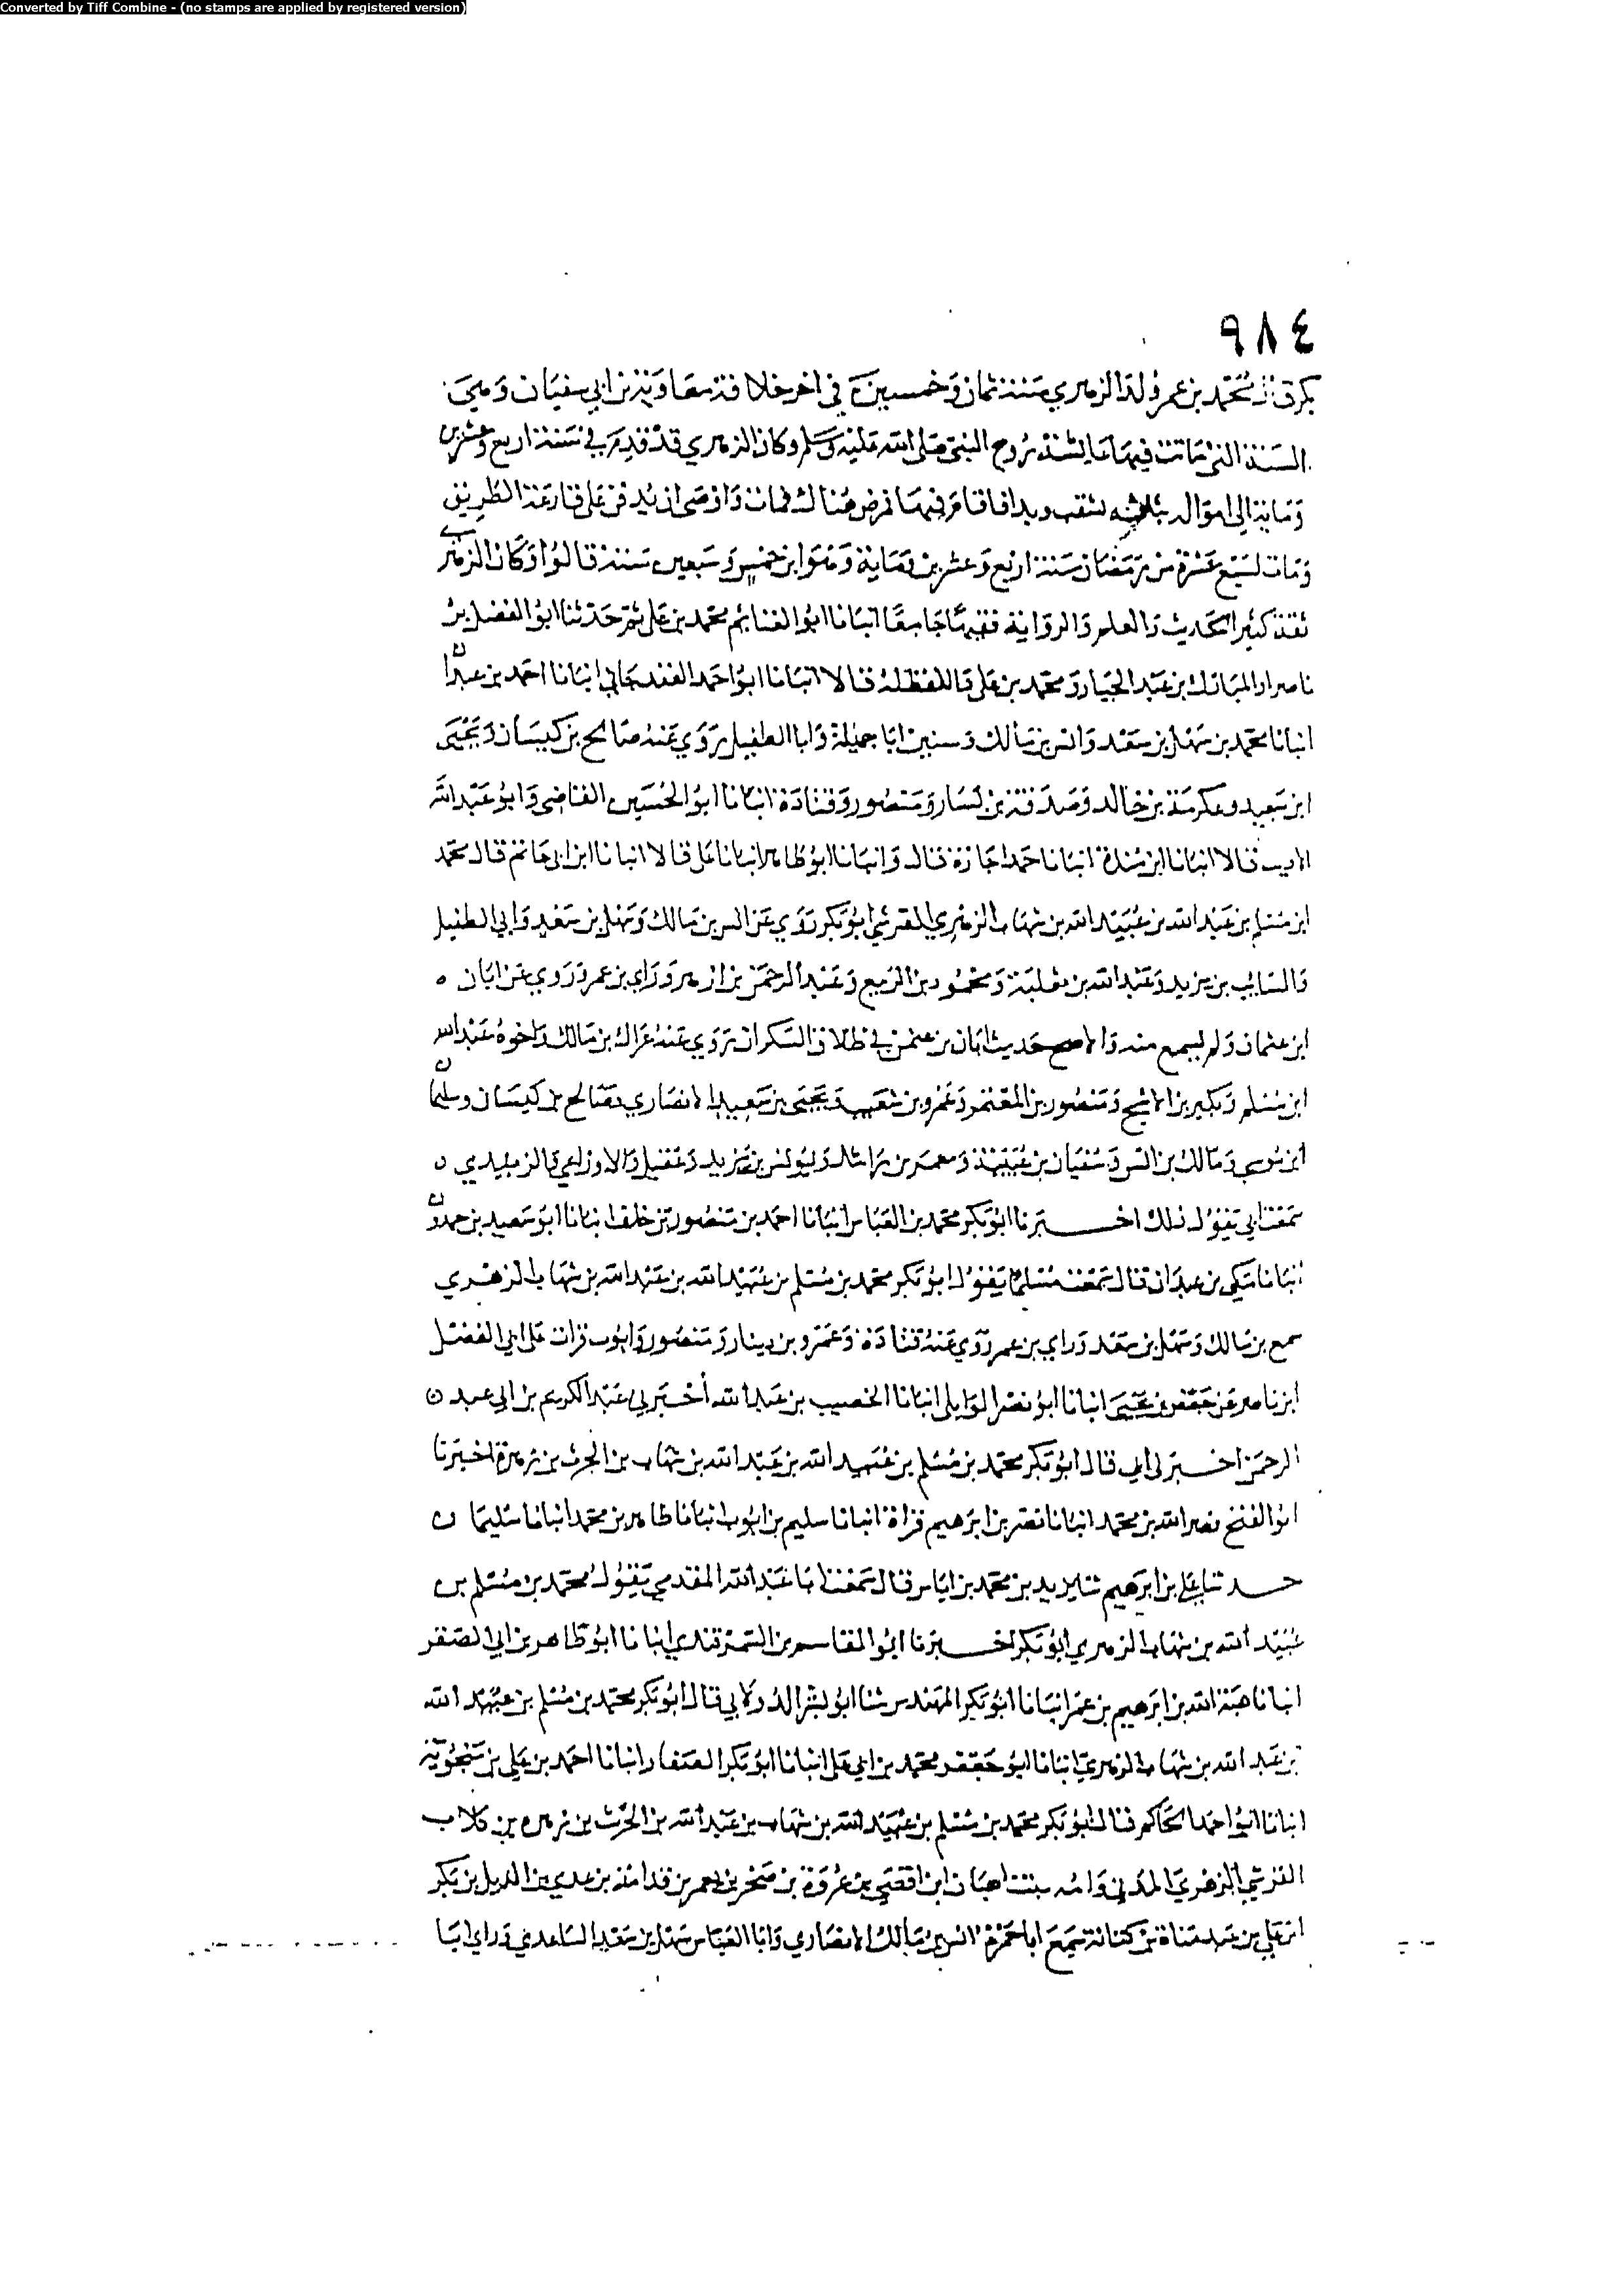 Converted by Tiff Combine - (no stamps are applied by registered version)
٩٨٤
بكر قال محمد بن عمر ولد الزهري سنة ثمان وخمسين في اخر خلافة معاوية بن ابي سفيان وهي
السنة التي ماتت فيها عائشة زوج النبي صلى الله عليه وسلم وكان الزهري قد قدم في سنة اربع وعشرين
ومائة الى امواله بثلاثه بشغب وبدا فاقام فيها فمرض هناك فمات واوصى ان يدفن على قارعة الطريق
ومات لسبع عشرة من رمضان سنة اربع وعشرين ومائة وهو ابن خمس وسبعين سنة قالوا وكان الزهري
ثقة كثير الحديث والعلم والرواية فقيها جامعا انبانا ابو الغنائم محمد بن علي ثم حدثنا ابو الفضل بن
ناصر انا المبارك بن عبد الجبار ومحمد بن علي واللفظ له قالا انبانا ابو احمد الغندجاني انبانا احمد بن عبدان
انبانا محمد بن سهل بن سعد وانس بن مالك وسنين ابا جميلة وابا الطفيل روى عنه صالح بن كيسان ويحيى
ابن سعيد وعكرمة بن خالد وصدقة بن يسار ومنصور وقتادة انبانا ابو الحسين القاضي وابو عبد الله
الاديب قالا انبانا ابن مندة انبانا حمد اجازة قال وانبانا ابو طاهر انبانا علي قالا انبانا ابن ابي حاتم قال محمد
ابن مسلم بن عبد الله بن عبيد الله بن شهاب الزهري القرشي ابو بكر روى عن انس بن مالك وسهل بن سعد وابي الطفيل
والسائب بن يزيد وعبد الله بن ثعلبة ومحمود بن الربيع وعبد الرحمن بن ازهر وراى بن عمر وروى عن ابان ه
ابن عثمان ولم يسمع منه والاصح حديث ابان بن عثمن في طلاق السكران روى عنه عراك بن مالك واخوه عبد الله
ابن مسلم وبكير بن الاشج ومنصور بن المعتمر وعمرو بن شعيب ويحيى بن سعيد الانصاري وصالح بن كيسان وسليمان
ابن موسى ومالك بن انس وسفيان بن عيينة ومعمر بن راشد ويونس بن يزيد وعقيل والاوزاعي والزبيدي ن
سمعت ابي يقول ذلك اخبرنا ابو بكر محمد بن العباس انبانا احمد بن منصور بن خلف انبانا ابو سعيد بن حمدون
انبانا مكي بن عبدان قال سمعت مسلما يقول ابو بكر محمد بن مسلم بن عبيد الله بن عبد الله بن شهاب الزهري
سمع بن مالك وسهل بن سعد وراى بن عمر روى عنه قتادة وعمرو بن دينار ومنصور وايوب قرات على ابي الفضل
ابن ناصر عن جعفر بن يحيى انبانا ابو نصر الوايلي انبانا الخصيب بن عبد الله أخبرني عبد الكريم بن ابي عبد ن
الرحمن اخبرني ابي قال ابو بكر محمد بن مسلم بن عبيد الله بن عبد الله بن شهاب بن الحرث بن زهرة اخبرنا
ابو الفتح نصر الله بن محمد انبانا نصر بن ابرهيم قراة انبانا سليم بن ايوب انبانا طاهر بن محمد انبانا سليمان
حدثنا علي بن ابرهيم ثنا يزيد بن محمد بن اياس قال سمعت ابا عبد الله المقدمي يقول محمد بن مسلم بن
عبيد الله بن شهاب الزهري ابو بكر اخبرنا ابو القاسم بن السمرقندي انبانا ابو طاهر بن ابي الصقر
انبانا هبة الله بن ابرهيم بن عمر انبانا ابو بكر المهندس ثنا ابو بشر الدولابي قال ابو بكر محمد بن مسلم بن عبيد الله
بن عبد الله بن شهاب الزهري انبانا ابو جعفر محمد بن ابي علي انبانا ابو بكر الصفار انبانا احمد بن علي بن منجويه
انبانا ابو احمد الحاكم قال ابو بكر محمد بن مسلم بن عبيد الله بن شهاب بن عبد الله بن الحرث بن زهره بن كلاب
القرشي الزهري المدني وامه بنت اهبان ابن اقصى بن عروة بن صخر بن يعمر بن قدامة بن عدي بن الديل بن بكر
ابن علي بن عبد مناة بن كنانة سمع ابا حمزة انس بن مالك الانصاري وابا العباس سهل بن سعد الساعدي وراى ابا